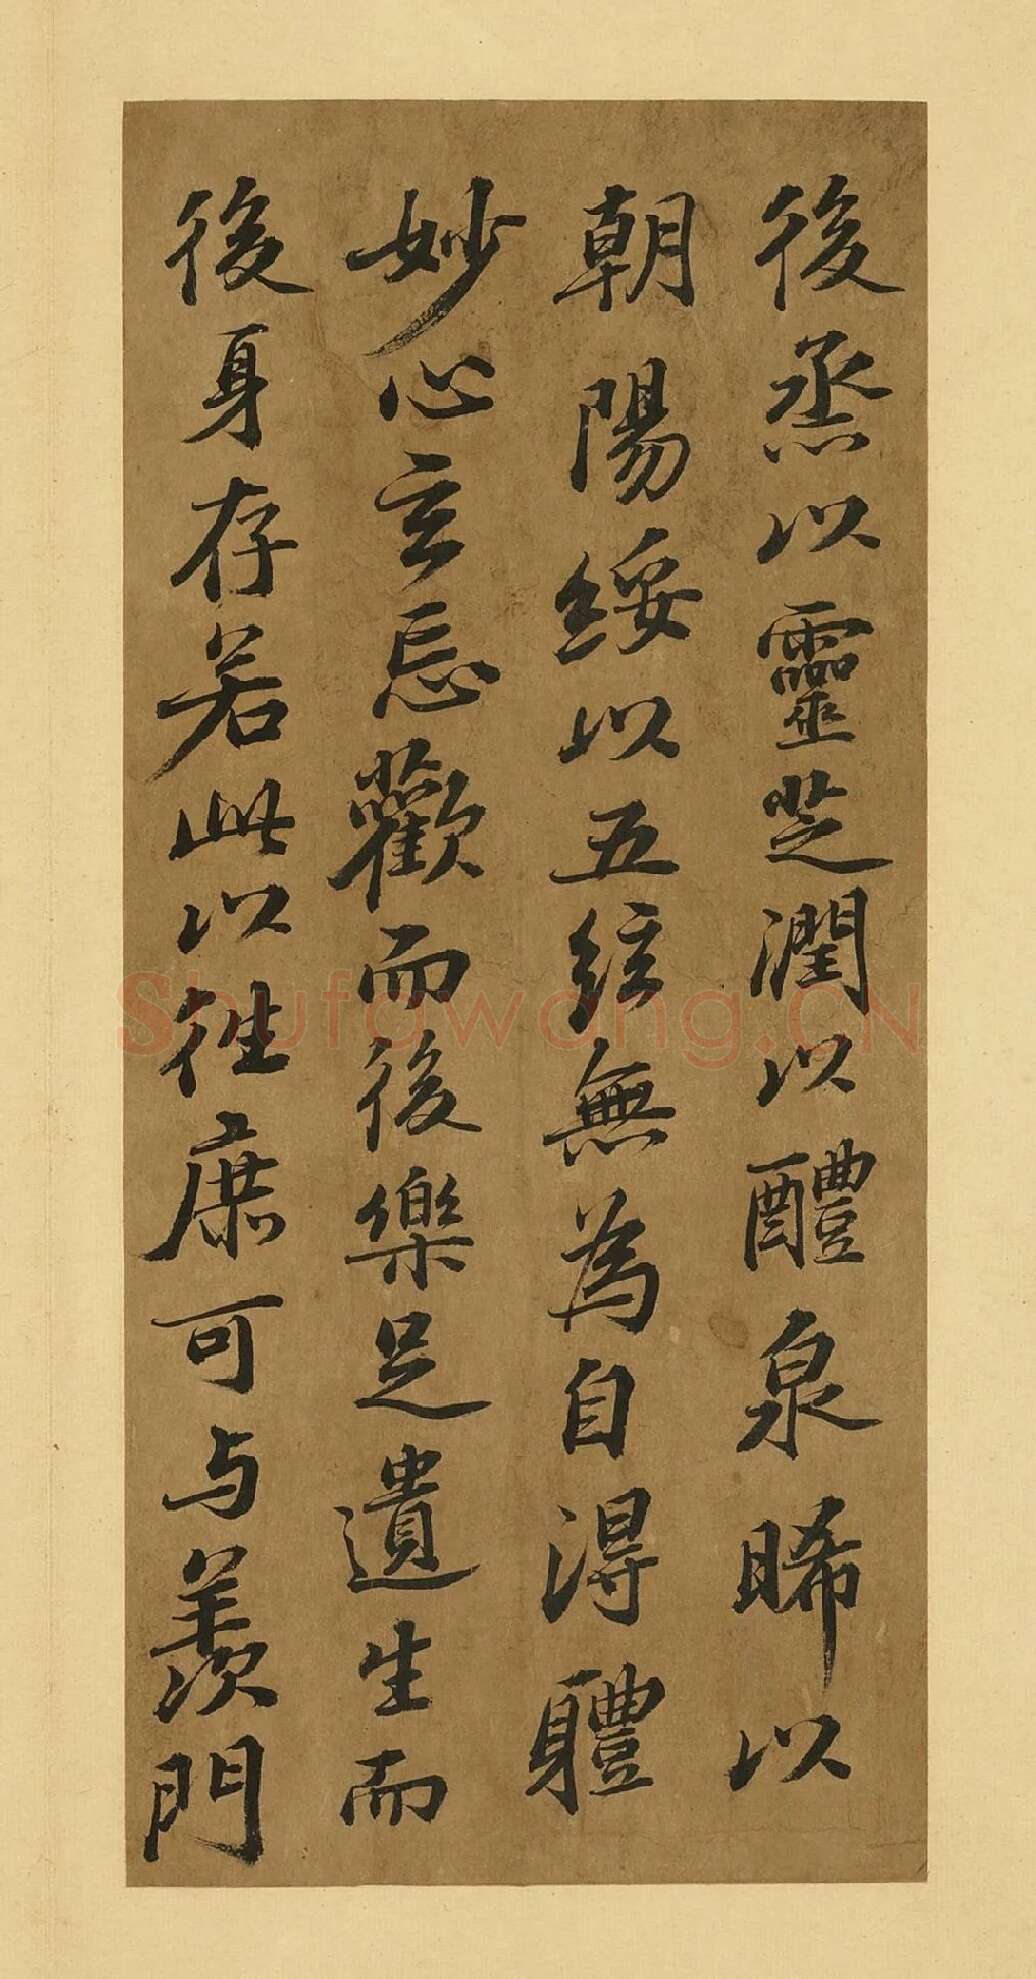 後烝以靈芝潤以醴泉晞以
朝陽綏以五絃無為自得軆
妙心玄忘歡而後樂足遺生而
後身存若此以往庶可与羨門
Shufawang.CN